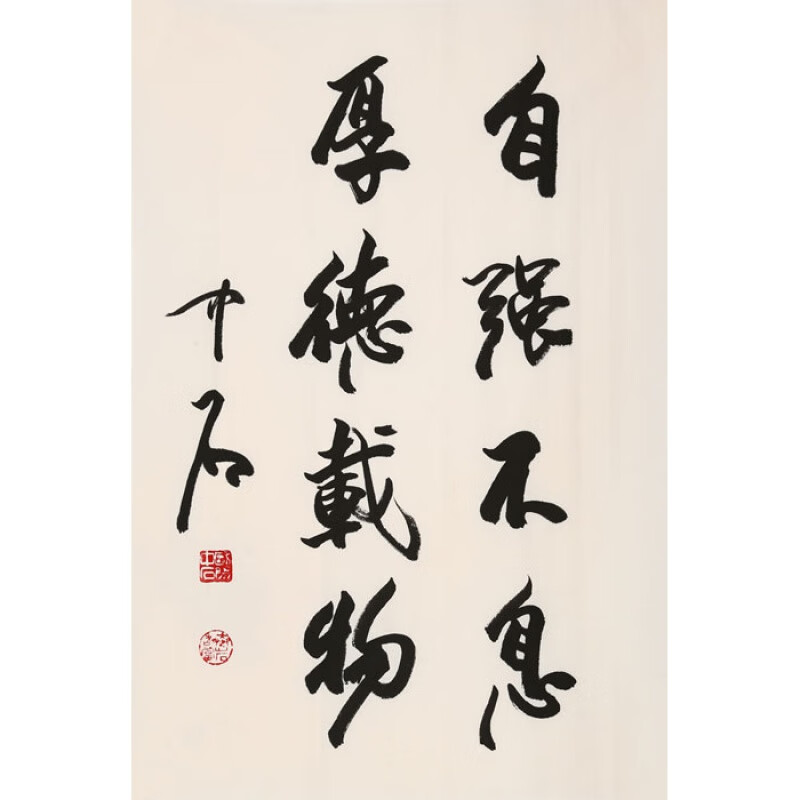 自強不息
厚德載物
中石